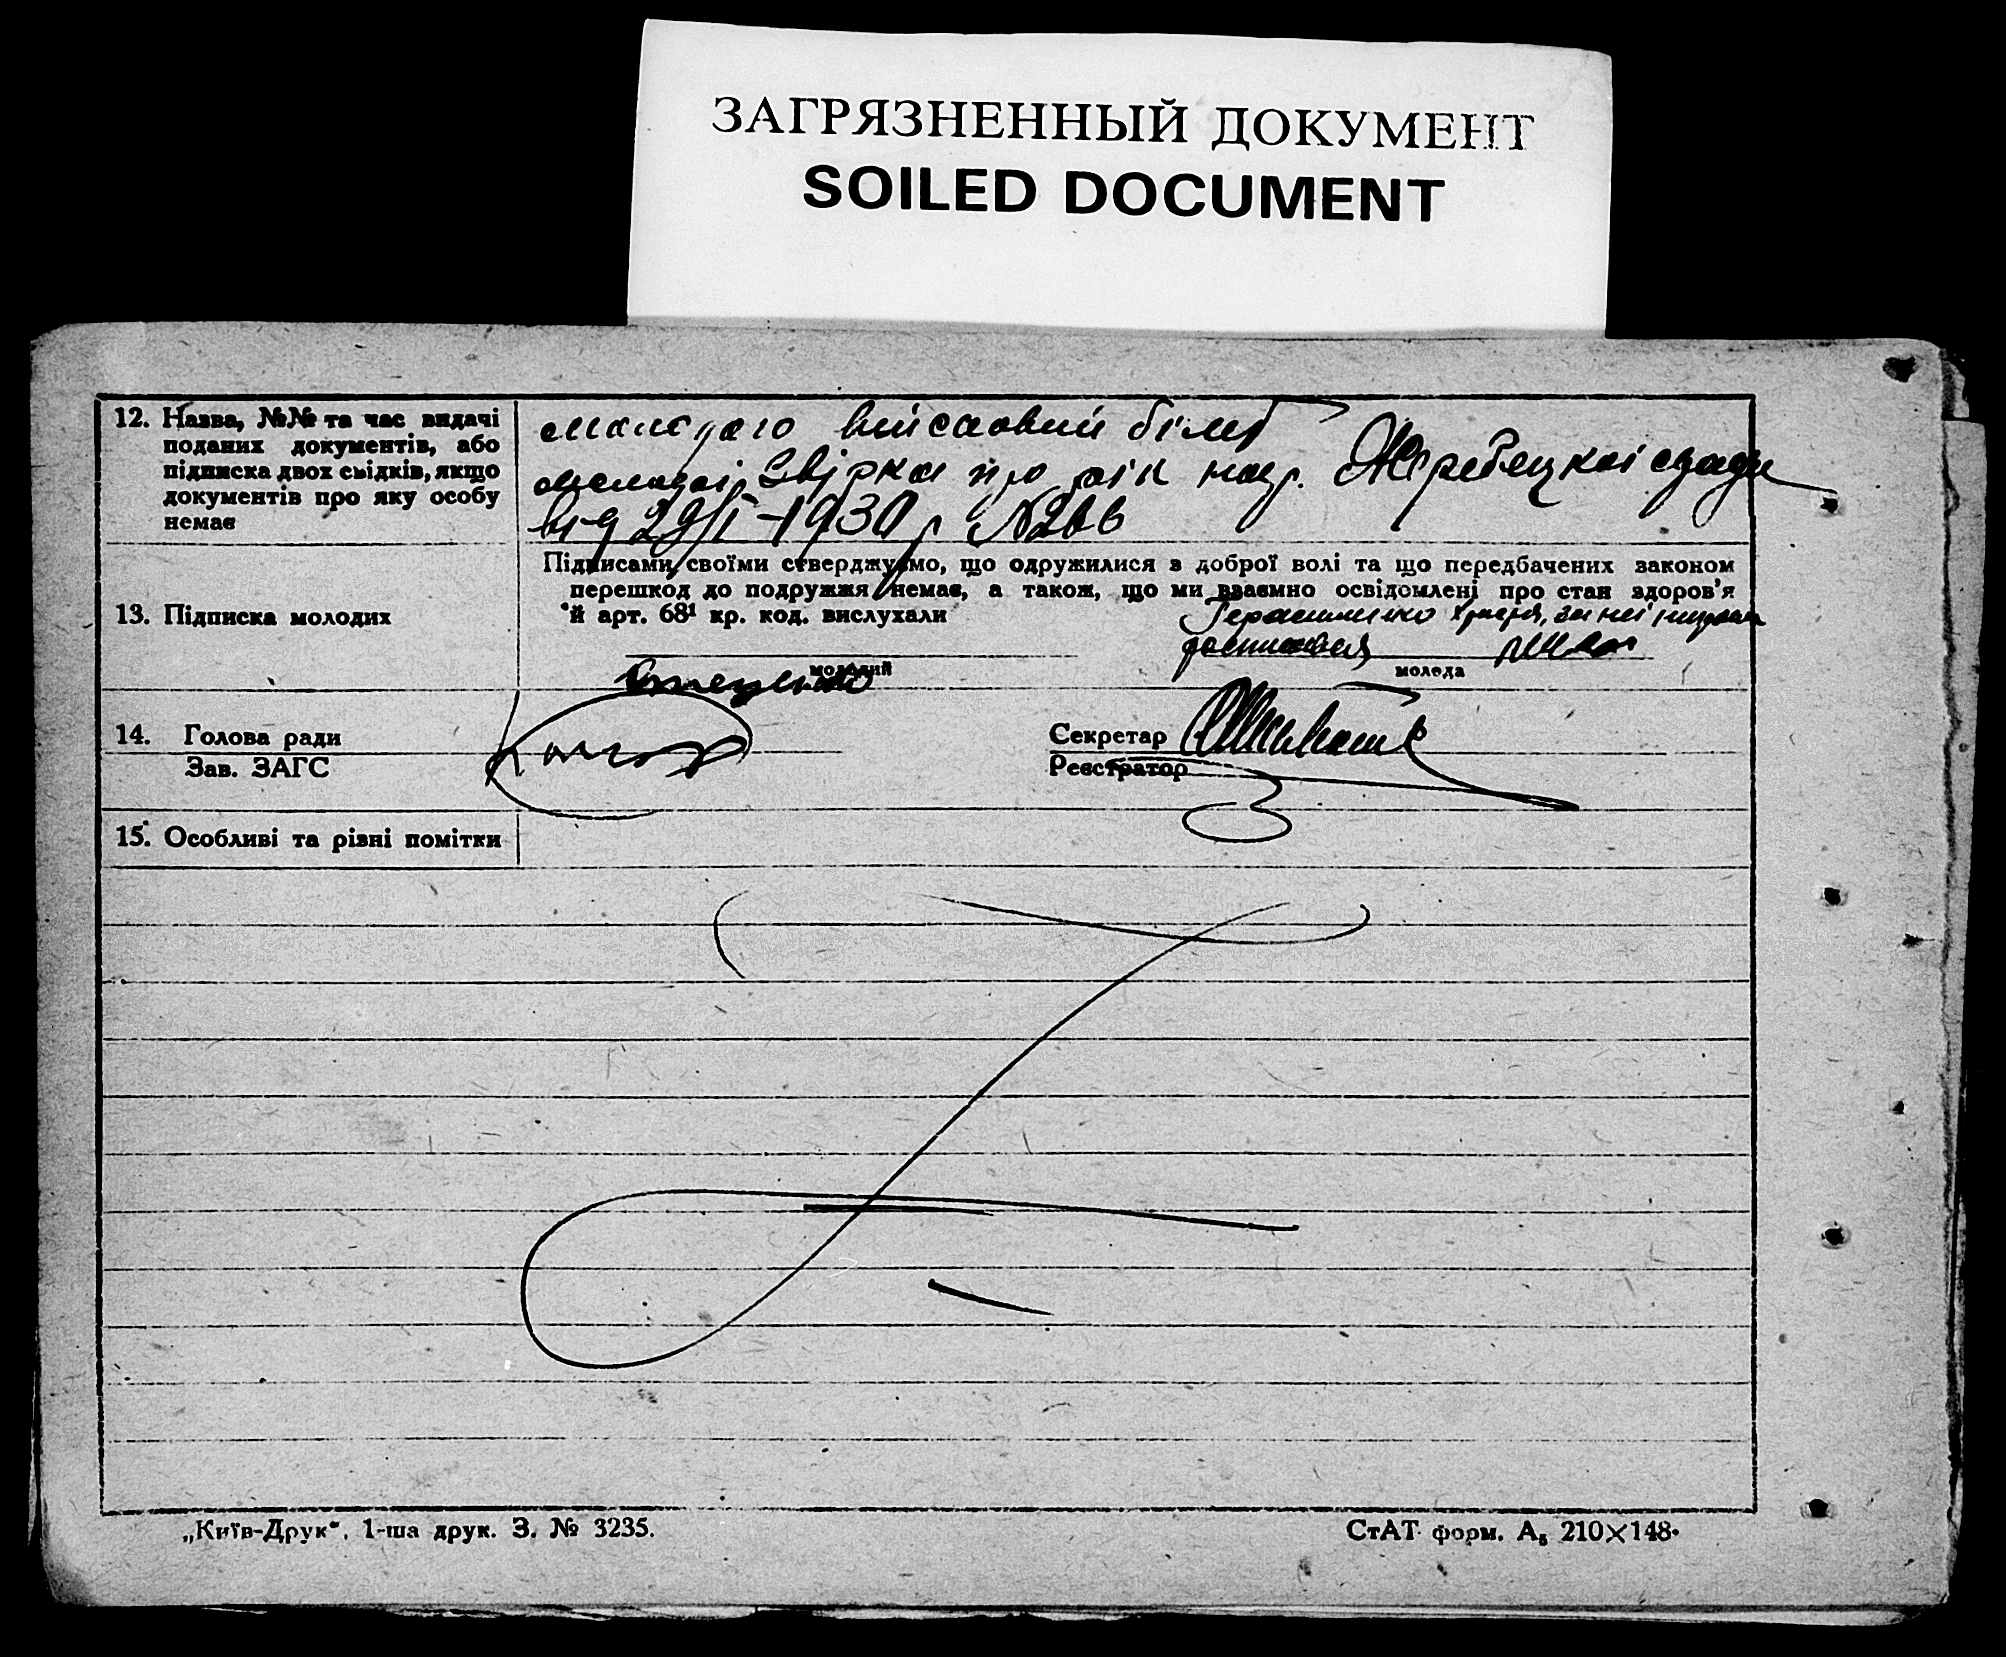 ЗАГРЯЗНЕННЫЙ ДОКУМЕНТ
SOILED DOCUMENT
12. Назва, №№ та час видачі
поданих документів, або
підписка двох свідків, якщо
документів про яку особу
немає
молодого військовий білет
молодої Звірка про рік нар.
від 29/I-1930 р №
Підписами своїми стверджуємо, що одружилися з доброї волі та що передбачених законом
перешкод до подружжя немає, а також, що ми взаємно освідомлені про стан здоров'я
й арт. 68¹ кр. код. вислухали
13. Підписка молодих
Герасименко за неї
молодий
молода
14. Голова ради
Зав. ЗАГС
Секретар
Реєстратор
15. Особливі та різні помітки
„Київ-Друк", 1-ша друк. З. № 3235.
СтАТ форм. А₅ 210×148.